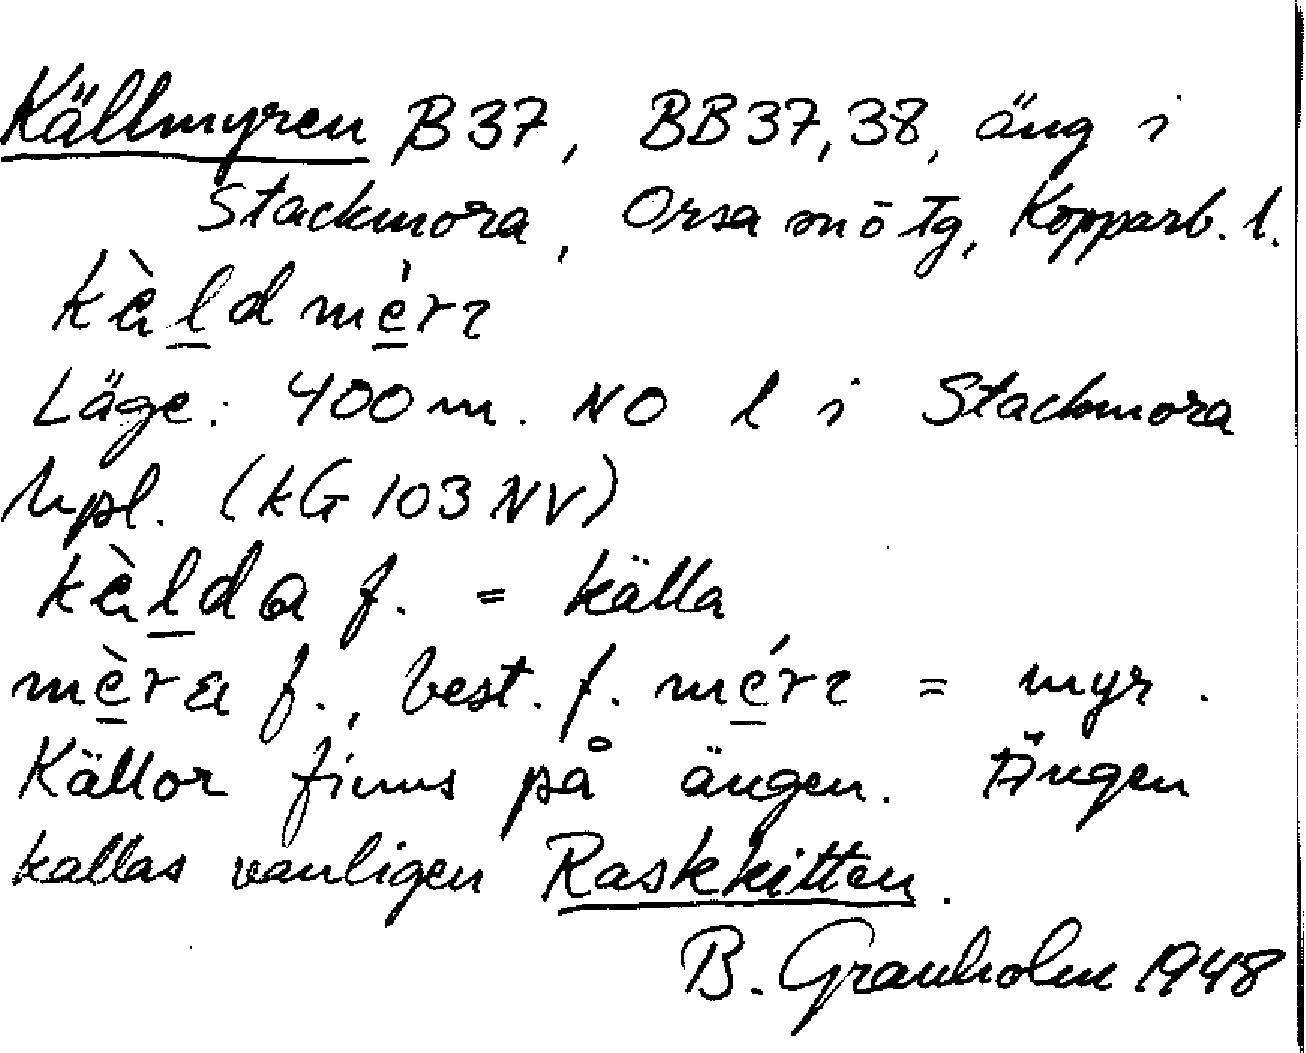 Källmyren B37, BB37,38, äng i
Stackmora, Orsa sn ö tg, Kopparb. l.
kèldmérɩ
Läge: 400 m. NO l i Stackmora
hpl. (kG 103 NV)
kèlda f. = källa
mèra f., best. f. mérɩ = myr.
Källor finns på ängen. Ängen
kallas vanligen Raskkitten.
B. Granholm 1948